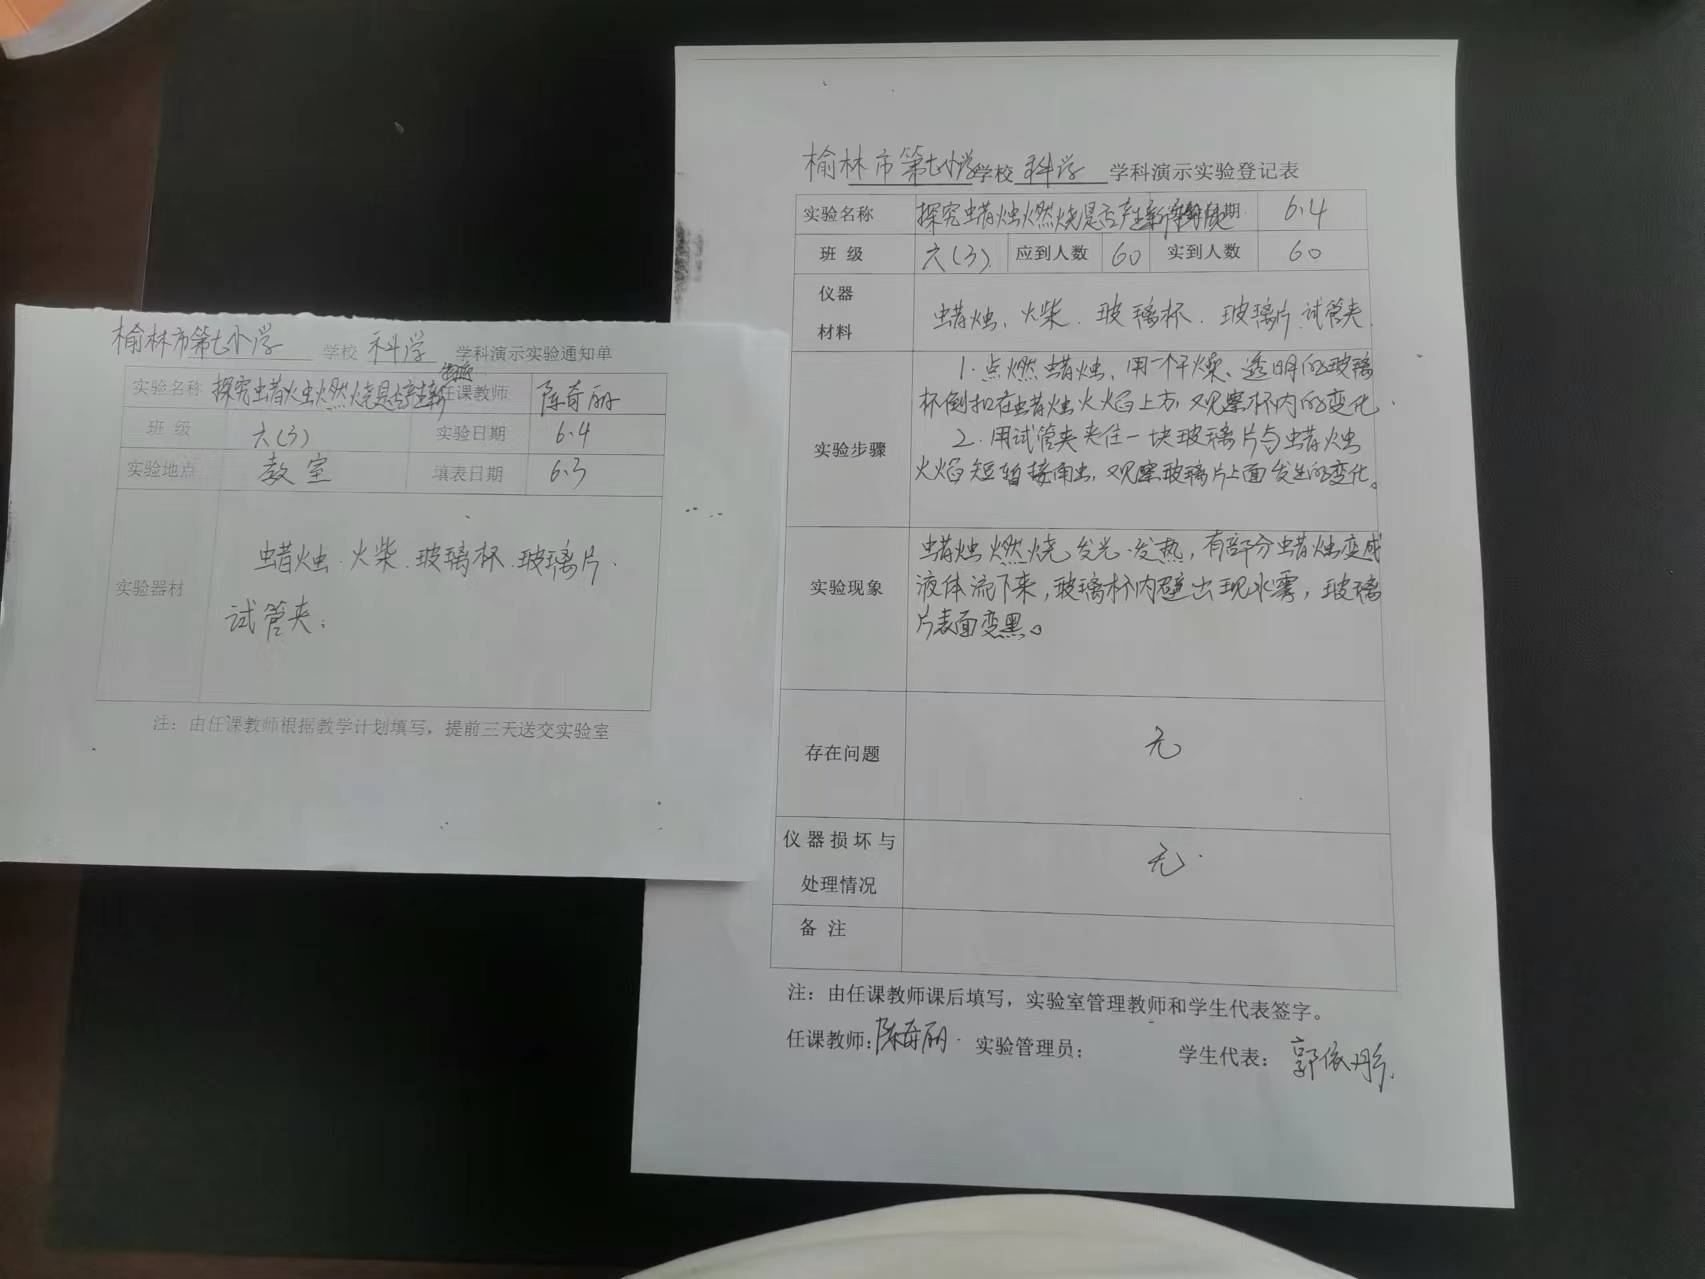 榆林市第七小学 学校 科学 学科演示实验通知单
实验名称 探究蜡烛燃烧是否产生新物质 任课教师 陈奇丽
班 级 六(3) 实验日期 6.4
实验地点 教室 填表日期 6.3
实验器材 蜡烛.火柴.玻璃杯.玻璃片.
试管夹.
注：由任课教师根据教学计划填写，提前三天送交实验室
榆林市第七小学学校 科学 学科演示实验登记表
实验名称 探究蜡烛燃烧是否产生新物质 实验日期 6.4
班 级 六(3) 应到人数 60 实到人数 60
仪器
材料
蜡烛、火柴.玻璃杯.玻璃片.试管夹
实验步骤
1.点燃蜡烛、用一个干燥、透明的玻璃
杯倒扣在蜡烛火焰上方,观察杯内的变化.
2.用试管夹夹住一块玻璃片与蜡烛
火焰短暂接触,观察玻璃片上面发生的变化。
实验现象
蜡烛燃烧,发光.发热,有部分蜡烛变成
液体流下来,玻璃杯内壁出现水雾,玻璃
片表面变黑。
存在问题 无
仪器损坏与
处理情况
无.
备 注
注：由任课教师课后填写，实验室管理教师和学生代表签字。
任课教师：陈奇丽. 实验管理员： 学生代表：郭依彤.